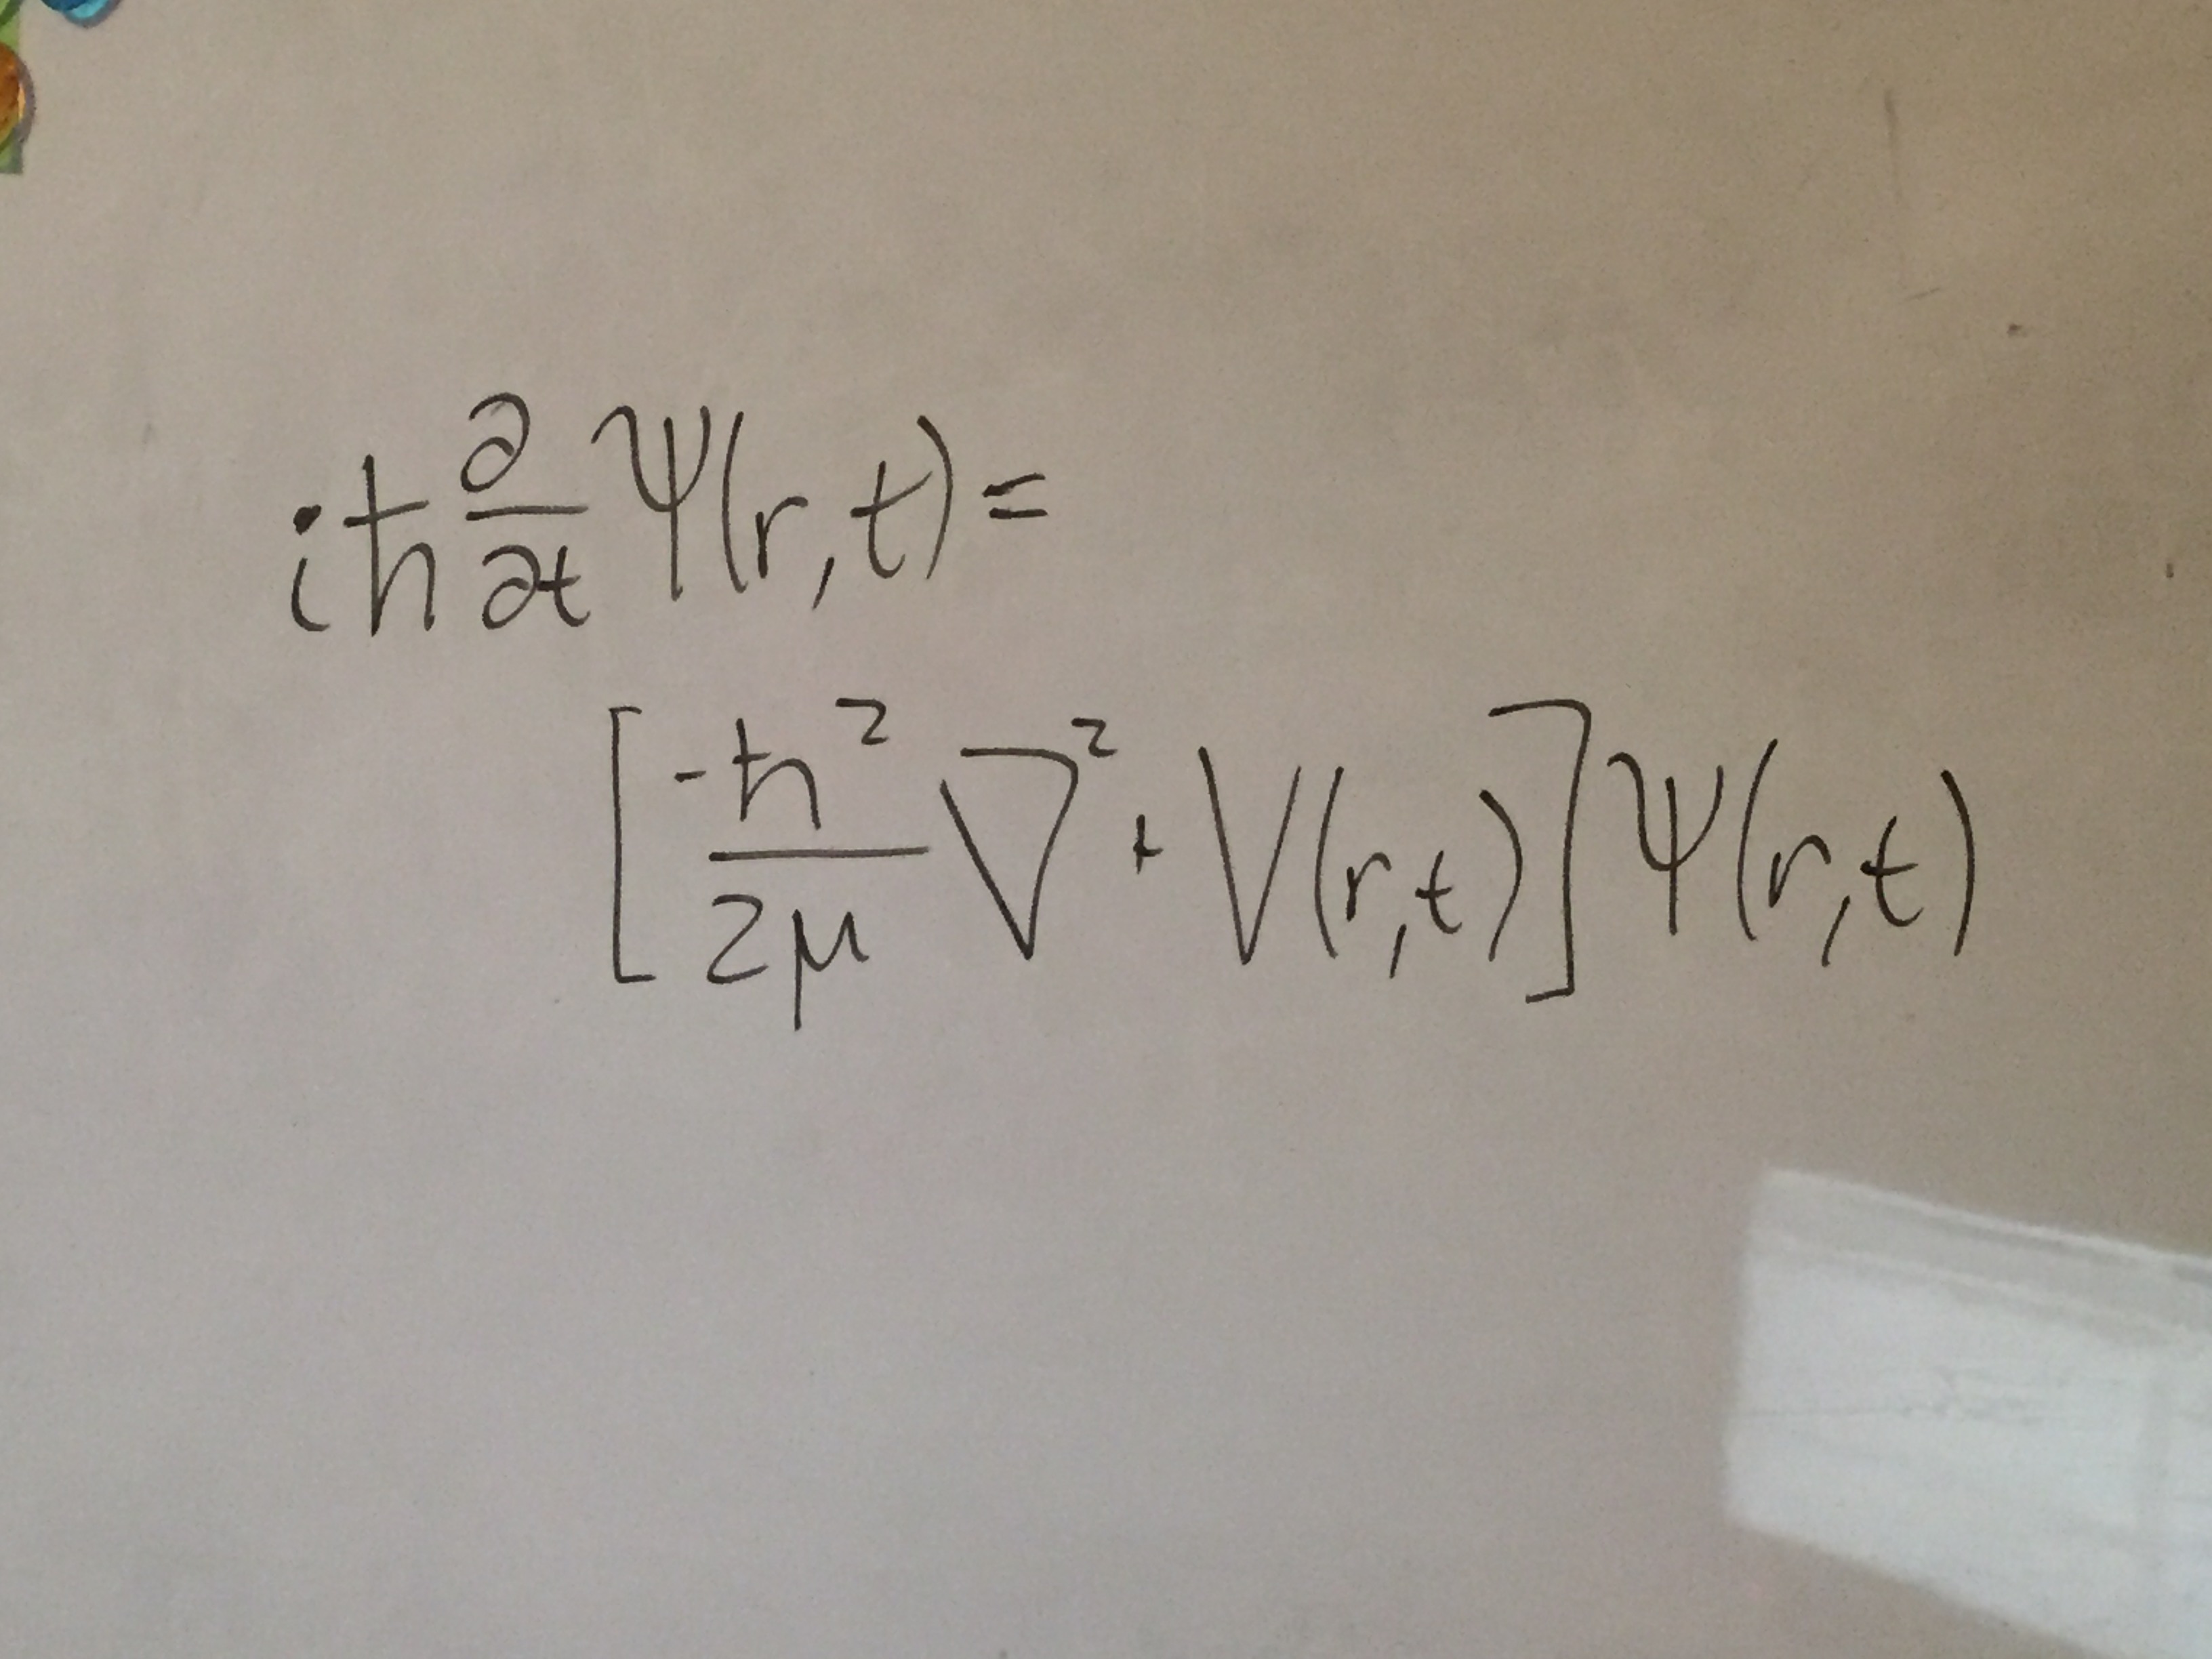 iħ ∂/∂t Ψ(r,t) =
[-ħ²/2μ ∇² + V(r,t)] Ψ(r,t)